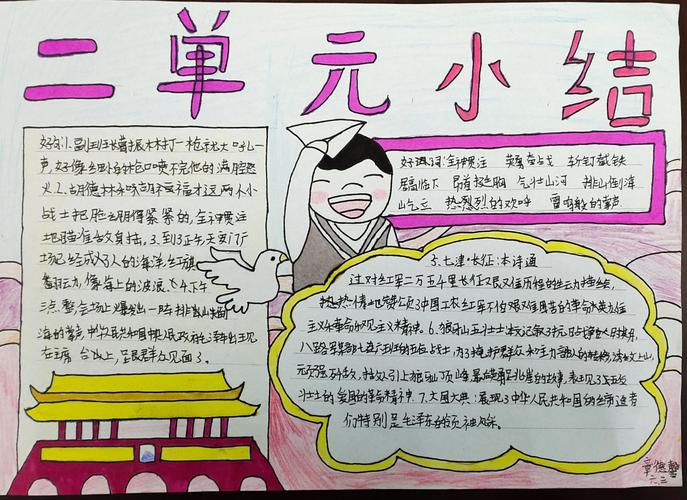 二单元小结
好句:1.副班长葛振林打一枪就大吼一
声,好像细小的枪口喷不完他的满腔怒
火。2.胡德林和胡福才这两个小
战士把脸绷得紧紧的,全神贯注
地瞄准敌人射击。3.到了正午,天安门广
场已经成了人的海洋,红旗
翻动,像海上的波浪。4.下午
三点整,会场上爆发出一阵排山倒
海的掌声,中华人民共和国中央人民政府
在主席台上,群众见面了。
好词:全神贯注 英勇奋战 斩钉截铁
临下 昂首挺胸 气壮山河 排山倒海
屹立 热烈的欢呼 雷鸣般的掌声
5.七律·长征:本诗通
过对红军二万五千里长征艰难征历程的描绘,
热情地赞颂了中国工农红军不怕艰难困苦的革命英雄
主义和革命乐观主义精神。6.狼牙山五壮士:本文记叙了抗日战争时期,
八路军某部七连六班的五位战士,为了掩护群众和主力部队的转移,诱敌上山,
顽强歼敌,把敌人引上狼牙山顶峰,最后跳下悬崖的故事,表现了五位
壮士的爱国的革命精神。7.开国大典:展现了中华人民共和国的缔造者
们特别是毛泽东的领袖风采。
章德馨
六.三